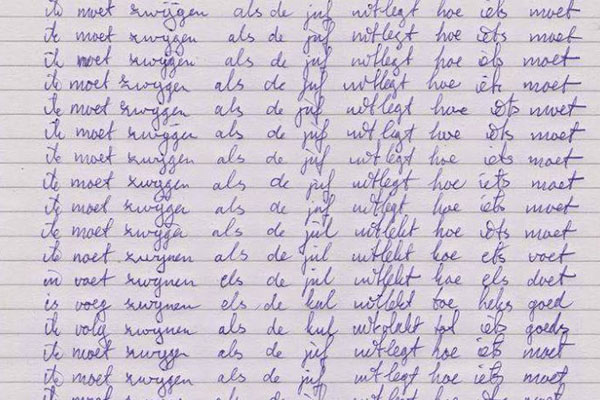 ik moet zwijgen als de juf uitlegt hoe iets moet
ik moet zwijgen als de juf uitlegt hoe iets moet
ik moet zwijgen als de juf uitlegt hoe iets moet
ik moet zwijgen als de juf uitlegt hoe iets moet
ik moet zwijgen als de juf uitlegt hoe iets moet
ik moet zwijgen als de juf uitlegt hoe iets moet
ik moet zwijgen als de juf uitlegt hoe iets moet
ik moet zwijgen als de juf uitlegt hoe iets moet
ik moet zwijgen als de juf uitlegt hoe iets moet
ik moet zwijga als de jul uitlekt hoe iets moet
ik noet zwijnen als de jul uitlekt hoe ets voet
in voet zwijnen els de jul uitlekt hoe els doet
is voeg zwijnen els de kul uitlekt toe heks goed
ik volg zwijnen als de kul tot iets goeds
ik moet zwijgen als de juf uitlegt hoe iets moet
ik moet zwijgen als de juf uitlegt hoe iets moet